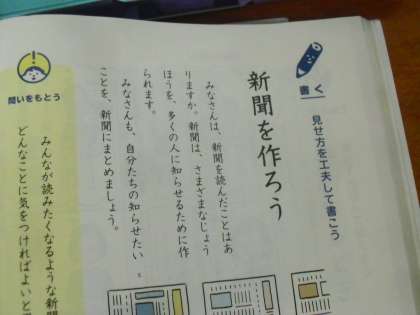 書く
見せ方を工夫して書こう
新聞を作ろう
みなさんは、新聞を読んだことはあ
りますか。新聞は、さまざまなじょう
ほうを、多くの人に知らせるために作
られます。
みなさんも、自分たちの知らせたい
ことを、新聞にまとめましょう。
問いをもとう
みんなが読みたくなるような新聞
どんなことに気をつければよいと